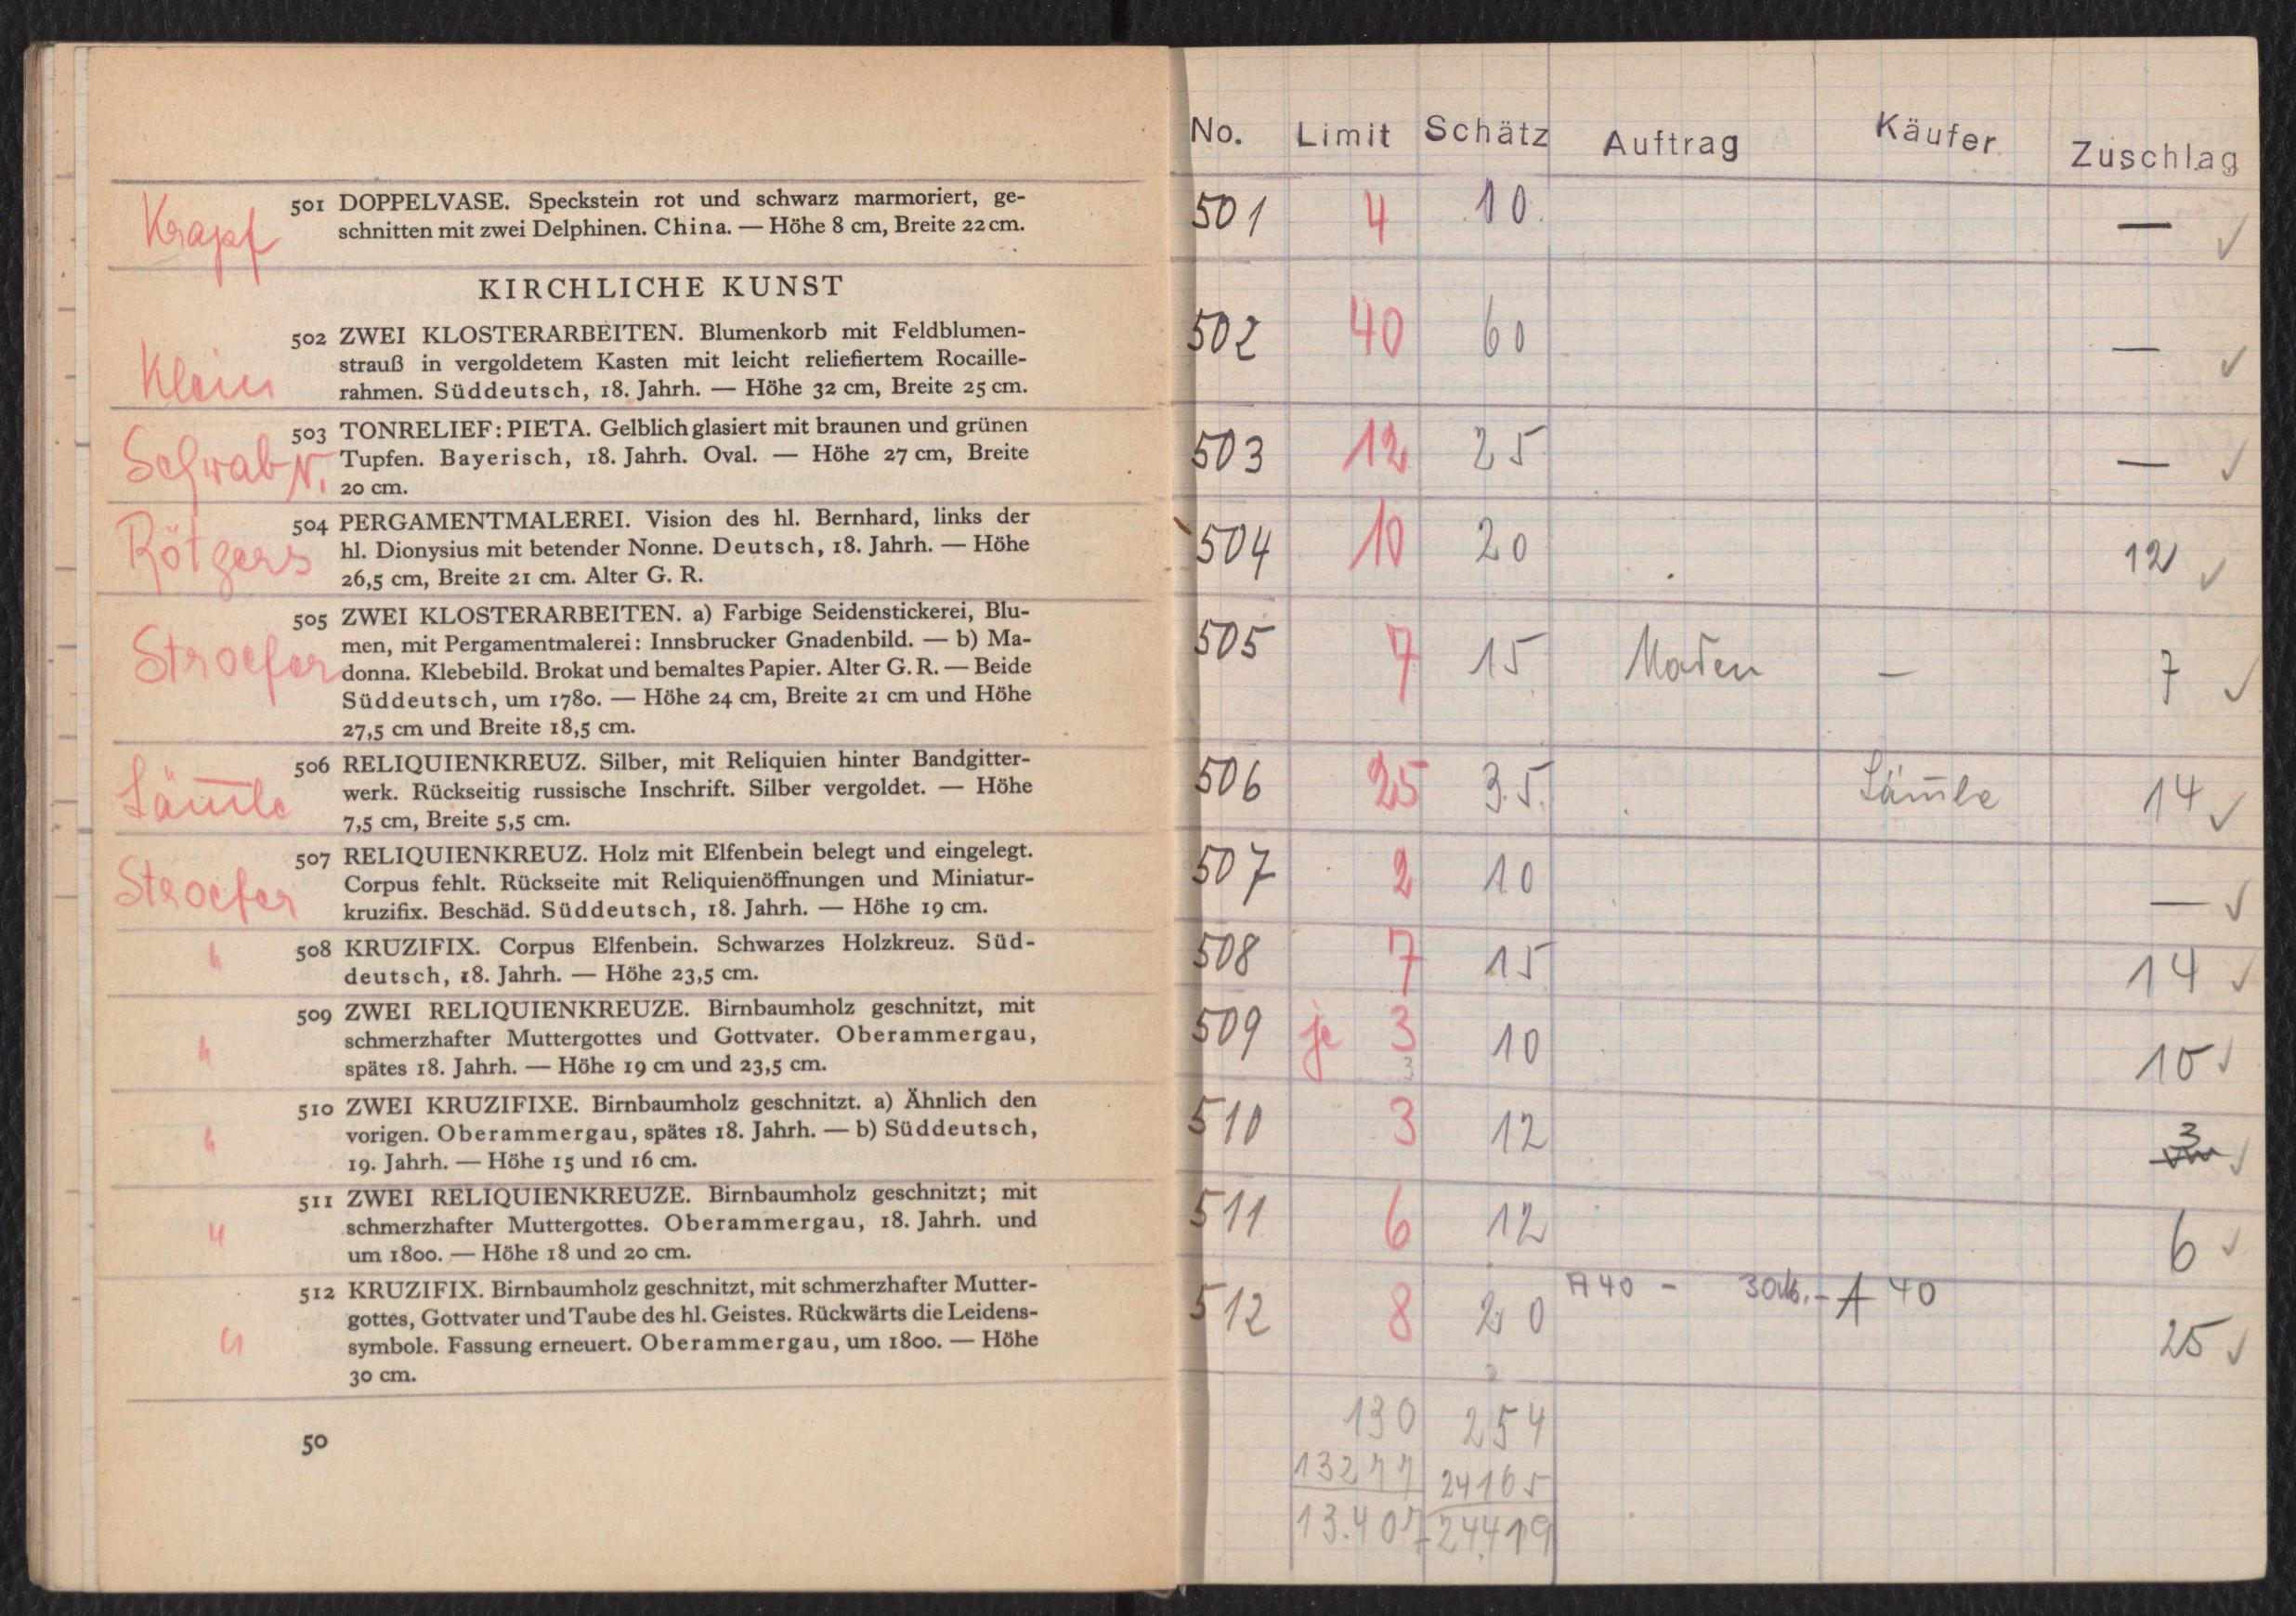 Krapf
501 DOPPELVASE. Speckstein rot und schwarz marmoriert, ge-
schnitten mit zwei Delphinen. China. — Höhe 8 cm, Breite 22 cm.
KIRCHLICHE KUNST
Klein
502 ZWEI KLOSTERARBEITEN. Blumenkorb mit Feldblumen-
strauß in vergoldetem Kasten mit leicht reliefiertem Rocaille-
rahmen. Süddeutsch, 18. Jahrh. — Höhe 32 cm, Breite 25 cm.
Schwab N.
503 TONRELIEF: PIETA. Gelblich glasiert mit braunen und grünen
Tupfen. Bayerisch, 18. Jahrh. Oval. — Höhe 27 cm, Breite
20 cm.
Rötgers
504 PERGAMENTMALEREI. Vision des hl. Bernhard, links der
hl. Dionysius mit betender Nonne. Deutsch, 18. Jahrh. — Höhe
26,5 cm, Breite 21 cm. Alter G. R.
Stroefer
505 ZWEI KLOSTERARBEITEN. a) Farbige Seidenstickerei, Blu-
men, mit Pergamentmalerei: Innsbrucker Gnadenbild. — b) Ma-
donna. Klebebild. Brokat und bemaltes Papier. Alter G. R. — Beide
Süddeutsch, um 1780. — Höhe 24 cm, Breite 21 cm und Höhe
27,5 cm und Breite 18,5 cm.
Läm̄le
506 RELIQUIENKREUZ. Silber, mit Reliquien hinter Bandgitter-
werk. Rückseitig russische Inschrift. Silber vergoldet. — Höhe
7,5 cm, Breite 5,5 cm.
Stroefer
507 RELIQUIENKREUZ. Holz mit Elfenbein belegt und eingelegt.
Corpus fehlt. Rückseite mit Reliquienöffnungen und Miniatur-
kruzifix. Beschäd. Süddeutsch, 18. Jahrh. — Höhe 19 cm.
"
508 KRUZIFIX. Corpus Elfenbein. Schwarzes Holzkreuz. Süd-
deutsch, 18. Jahrh. — Höhe 23,5 cm.
"
509 ZWEI RELIQUIENKREUZE. Birnbaumholz geschnitzt, mit
schmerzhafter Muttergottes und Gottvater. Oberammergau,
spätes 18. Jahrh. — Höhe 19 cm und 23,5 cm.
"
510 ZWEI KRUZIFIXE. Birnbaumholz geschnitzt. a) Ähnlich den
vorigen. Oberammergau, spätes 18. Jahrh. — b) Süddeutsch,
19. Jahrh. — Höhe 15 und 16 cm.
"
511 ZWEI RELIQUIENKREUZE. Birnbaumholz geschnitzt; mit
schmerzhafter Muttergottes. Oberammergau, 18. Jahrh. und
um 1800. — Höhe 18 und 20 cm.
"
512 KRUZIFIX. Birnbaumholz geschnitzt, mit schmerzhafter Mutter-
gottes, Gottvater und Taube des hl. Geistes. Rückwärts die Leidens-
symbole. Fassung erneuert. Oberammergau, um 1800. — Höhe
30 cm.
50
No. Limit Schätz Auftrag Käufer Zuschlag
501 4 10. — ✓
502 40 60 — ✓
503 12 25 — ✓
504 10 20 12 ✓
505 7 15 — 7 ✓
506 25 35. Läm̄le 14 ✓
507 2 10 — ✓
508 7 15 14 ✓
509 je 3 10 10 ✓
3
510 3 12 3 ✓
511 6 12 6 ✓
512 8 20 A 40 - - A 40 25 ✓
130 254
13277 24165
13.407 24419